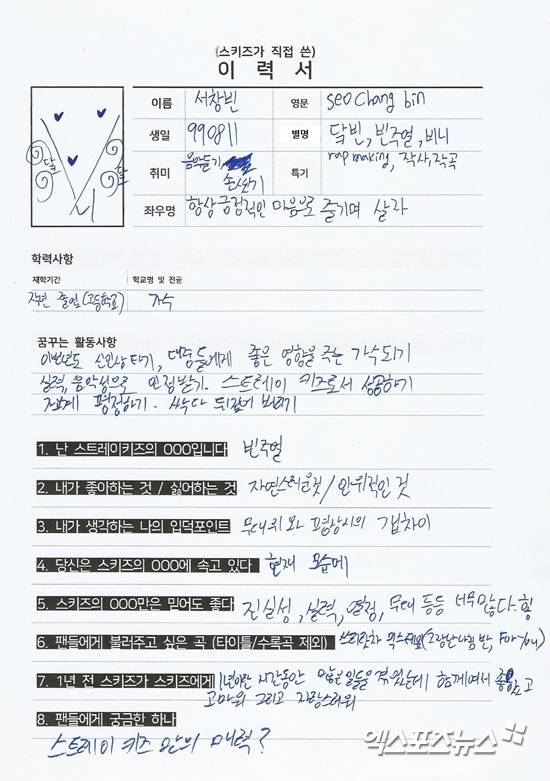 (스키즈가 직접 쓴)
이 력 서
이름 서창빈 영문 seo chang bin
생일 990811 별명 답빈, 빈주얼, 비니
취미 음악듣기 손씻기 특기 rap making, 작사, 작곡
좌우명 항상 긍정적인 마음으로 즐기며 살자
학력사항
재학기간 학교명 및 전공
작년 졸업(고등학교) 가수
꿈꾸는 활동사항
이번년도 신인상 타기, 대중들에게 좋은 영향을 주는 가수되기
실력, 음악성으로 인정받기. 스트레이 키즈로서 성공하기
전세계 평정하기. 싹다 뒤집어 버리기
1. 난 스트레이키즈의 OOO입니다 빈주얼
2. 내가 좋아하는 것 / 싫어하는 것 자연스러운것 / 인위적인 것
3. 내가 생각하는 나의 입덕포인트 무대위와 평상시의 갭차이
4. 당신은 스키즈의 OOO에 속고 있다 현재 모습에
5. 스키즈의 OOO만은 믿어도 좋다 진실성, 실력, 열정, 무대 등등 너무많다. 힝
6. 팬들에게 불러주고 싶은 곡 (타이틀/수록곡 제외) 쓰리라차 믹스테잎(고장난 나침반, For You)
7. 1년 전 스키즈가 스키즈에게 1년이란 시간동안 많은 일들을 겪었는데 함께여서 좋았고
고마워 그리고 자랑스러워
8. 팬들에게 궁금한 하나
스트레이 키즈 만의 매력?
엑스포츠뉴스